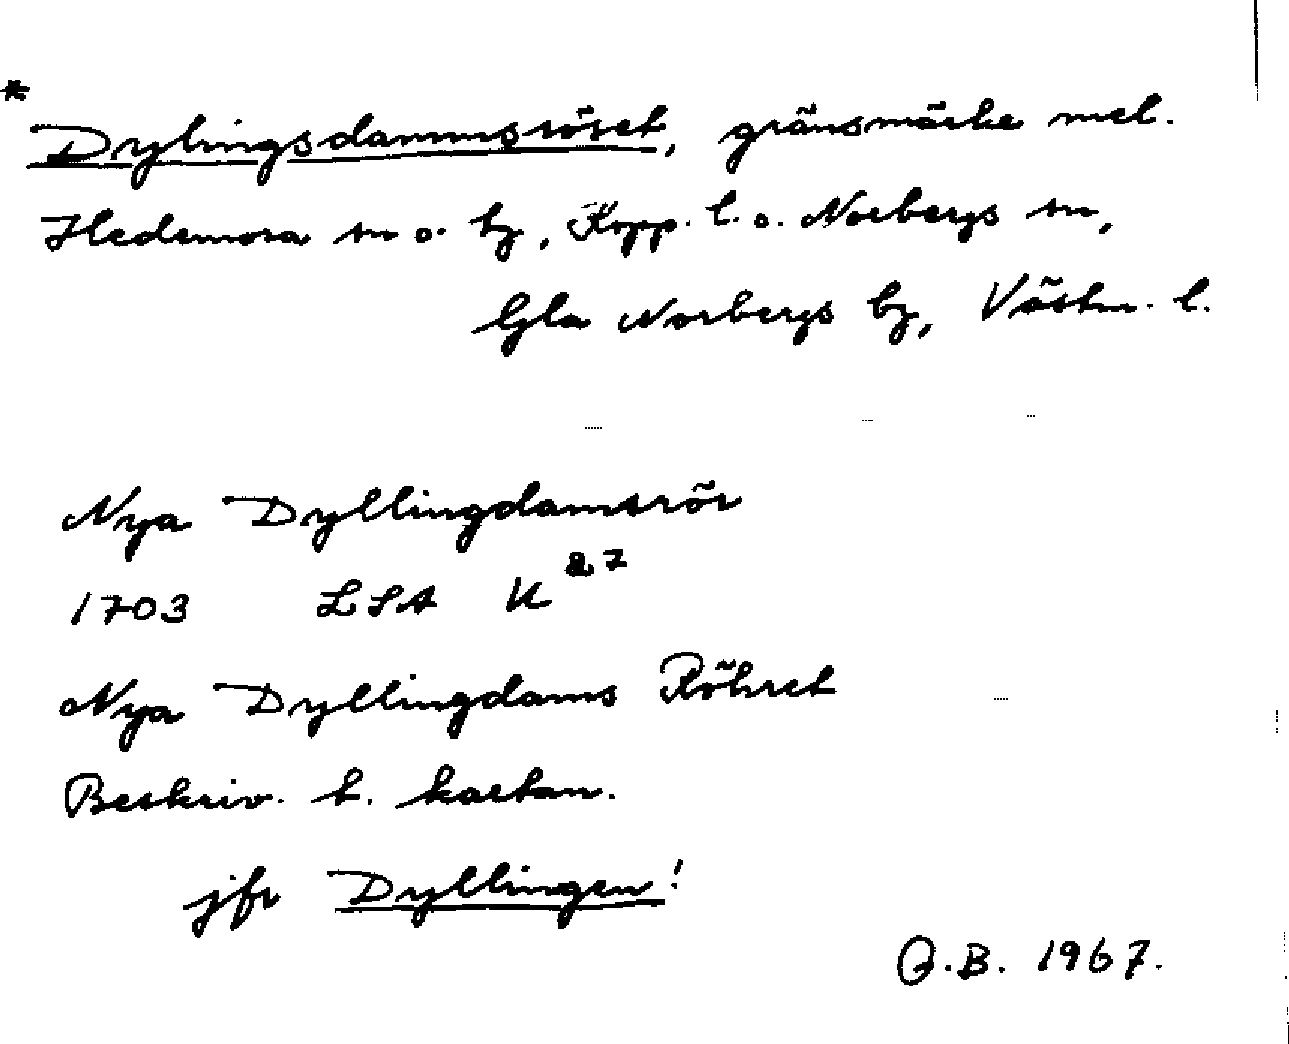 * Dylingsdammsröset, gränsmärke mel.
Hedemora sn o. hd, Kopp. l. o. Norbergs sn,
Gla Norbergs hd, Västm. l.
Nya Dyllingdamsrör
1703 LSA U 27
Nya Dyllingdams Röhret
Beskriv. t. kartan.
jfr Dyllingen!
B. 1967.